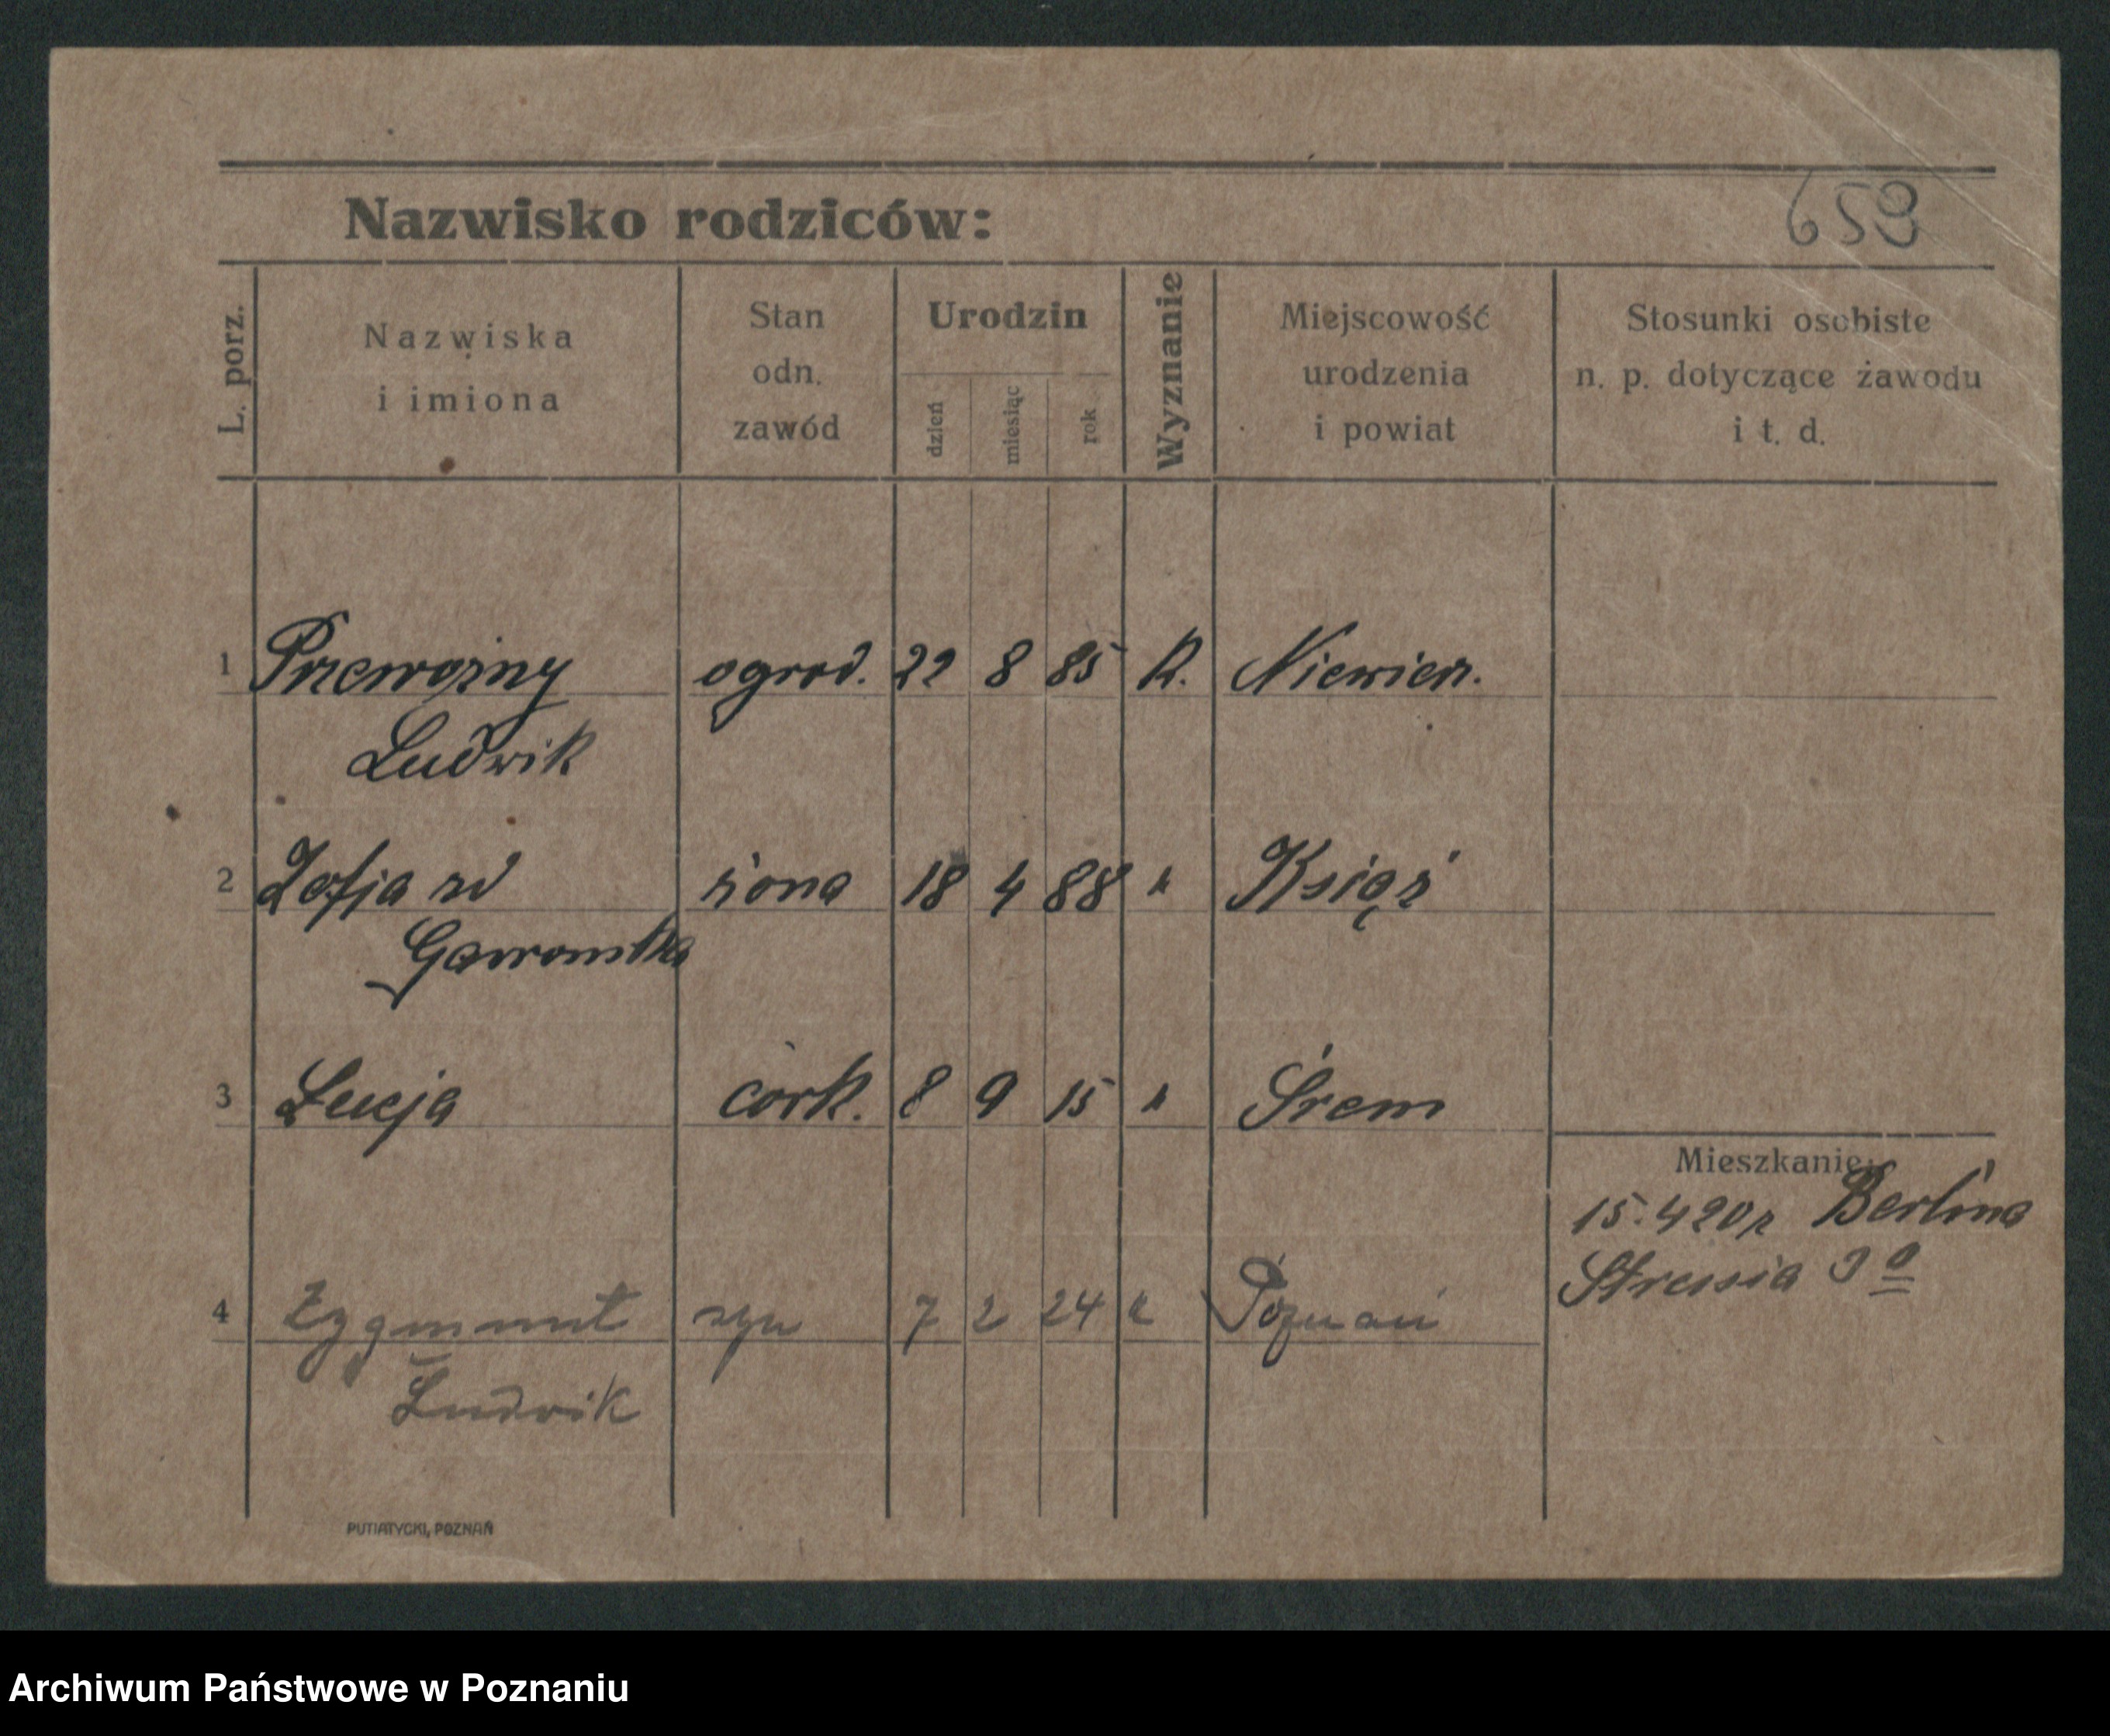 Nazwisko rodziców:
659
L. porz.
Nazwiska
i imiona
Stan
odn.
zawód
Urodzin
dzień
miesiąc
rok
Wyznanie
Miejscowość
urodzenia
i powiat
Stosunki osobiste
n. p. dotyczące zawodu
i t. d.
1 Przewoźny ogrod. 22 8 85 K.
Ludwik
2 Zofja żona 18 4 88 " Książ
3 Łucja córk. 8 9 15 " Śrem
Mieszkanie:
15.420r Berlina
4 Zygmunt syn 7 2 24 " Poznań
Ludwik
PUTIATYCKI, POZNAŃ
Archiwum Państwowe w Poznaniu